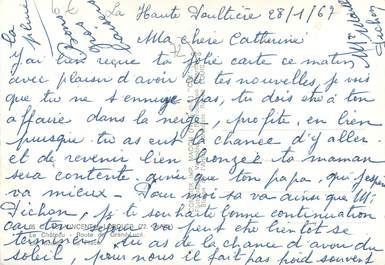 La Haute Daultière 28/1/69
Ma chère Catherine
j'ai bien reçue ta jolie carte ce matin
avec plaisir d'avoir de tes nouvelles, je vois
que tu ne t'ennuye pas, tu dois être à ton
affaire dans la neige, profite en bien
puisque tu as eut la chance d'y aller
et de revenir bien bronzée ta maman
sera contente, ainsi que ton papa, qui j'espère
va mieux - Pour moi sa va ainsi que Mr
Dichon, je te souhaite bonne continuation
car ton va peut être bientôt se
terminer, tu as de la chance d'avoir du
soleil, pour nous il fait pas souvent
la pluie
Bons
Bois
Baisers
Mr
Dichon
Le Château - Route de Grand-Lucé